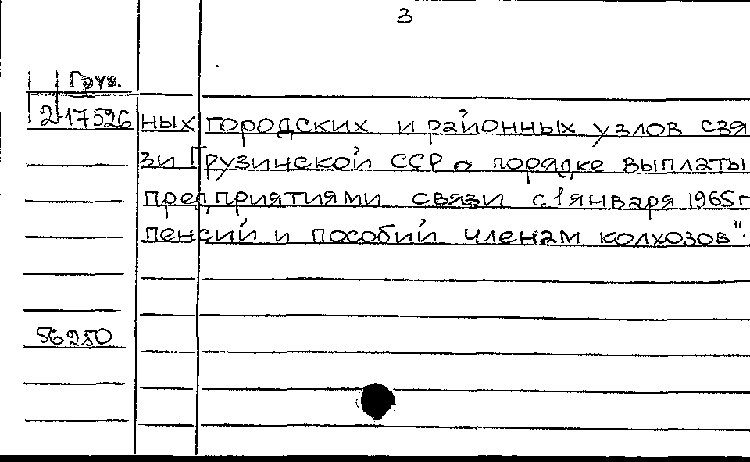 3
Груз.
2-17526 ных городских и районных узлов свя
зи Грузинской ССР о порядке выплаты
предприятиями связи с 1 января 1965 г
пенсий и пособий членам колхозов".
56250